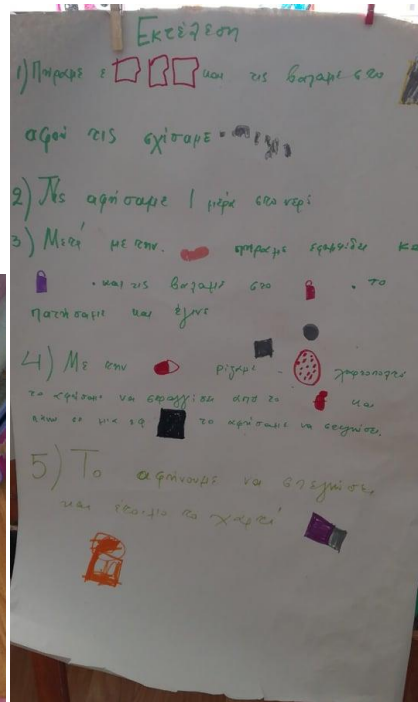 Εκτέλεση
1) Πήραμε ε και τις βάζαμε στο
αφού τις σχίσαμε.
2) Τις αφήσαμε 1 μέρα στο νερό
3) Μετά με την. πήραμε εφημερίδα κα
. και τις βάζαμε στο . το
πατήσαμε και έγινε
4) Με την ρίξαμε χαρτοπολτό
το αφήσαμε να στραγγίσει από το και
πάνω σε μια το αφήσαμε να στεγνώσει.
5) Το αφήνουμε να στεγνώσει
και έτοιμο το χαρτί